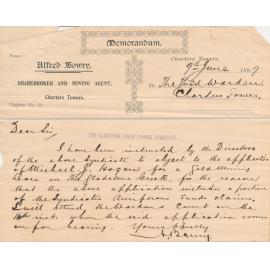 Memorandum.
FROM
Alfred Bowry,
SHAREBROKER AND MINING AGENT,
Charters Towers.
Telephone No.
Charters Towers,
9th June 1897
To The Gold Warden
Charters Towers.
Dear Sir,
I have been instructed by the Directors
of the above Syndicate to object to the application
of Michael J. Hogan for a Gold Mining
Lease on the Gladstone Creek, for the reason
that the above application includes a portion
of the Syndicates Auriferous Sands claims.
I will attend the Warden's Court on the
16th inst. when the said application comes
on for hearing.
Yours truly
A. Bowry